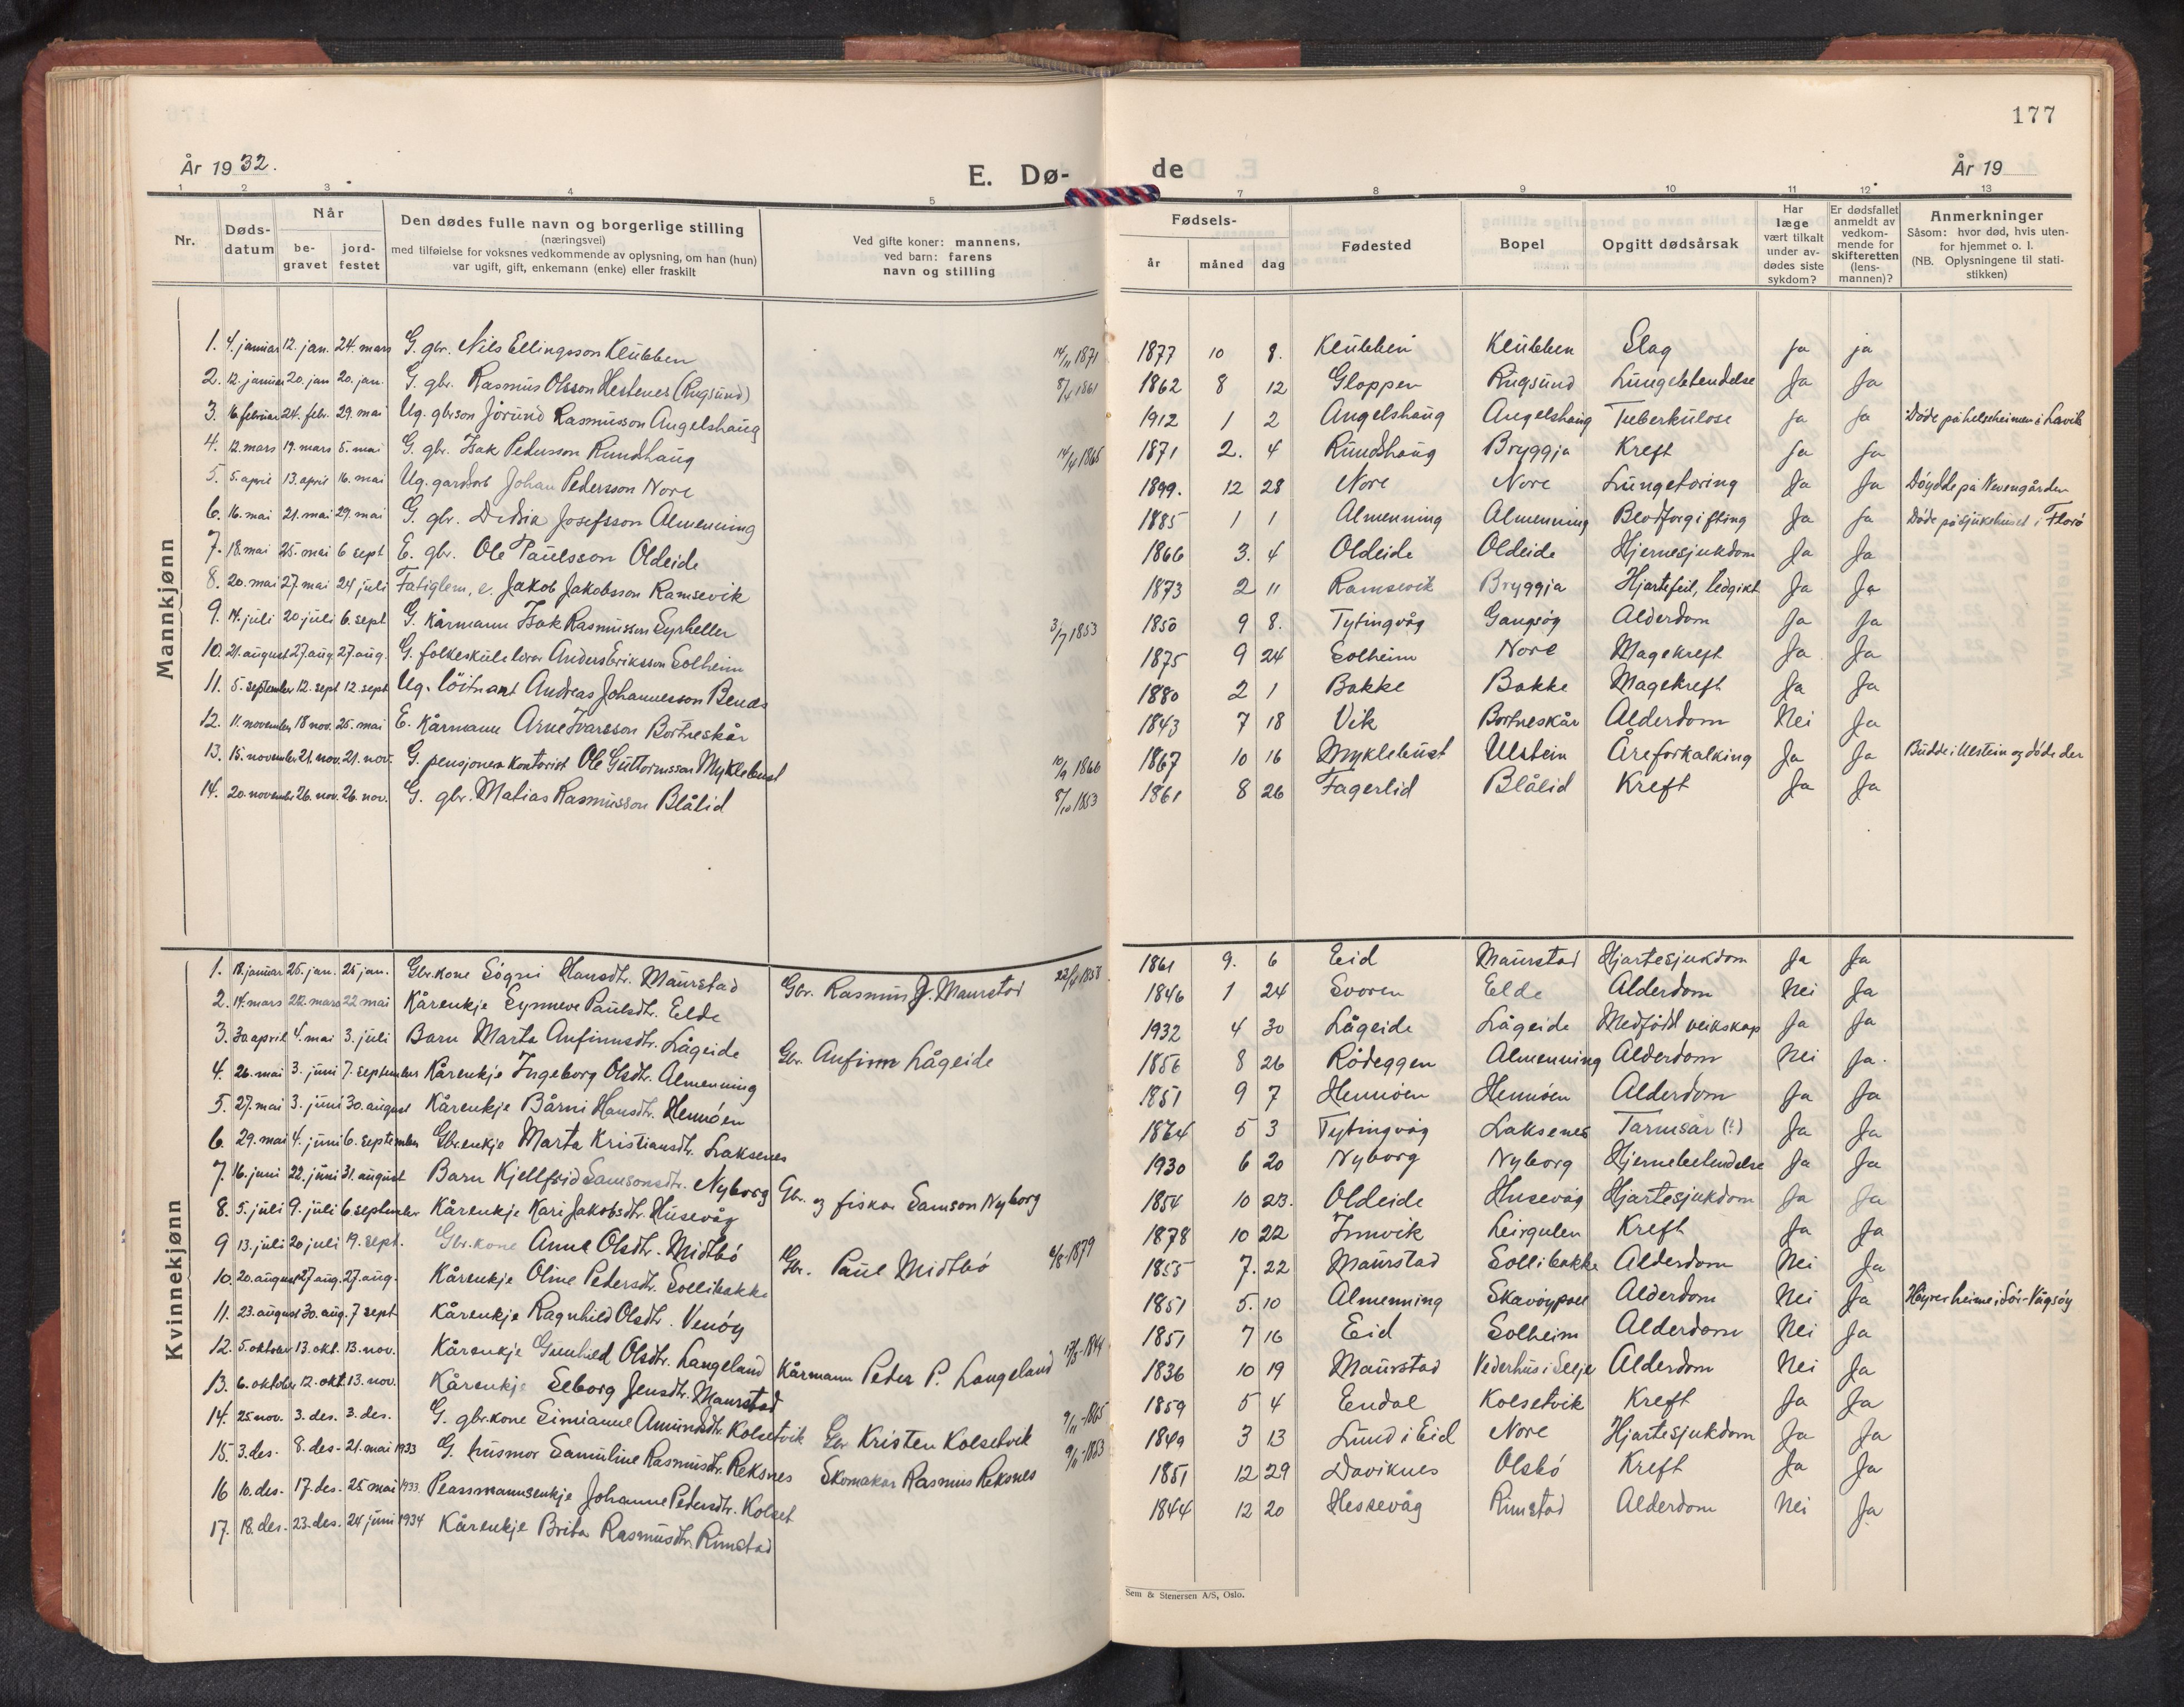 177
År 1932.
E. Dø-
de
År 19
1 2 3 4 5 7 8 9 10 11 12 13
Nr.
Døds-
datum
Når
be-
gravet
jord-
festet
Den dødes fulle navn og borgerlige stilling
(næringsvei)
med tilføielse for voksnes vedkommende av oplysning, om han (hun)
var ugift, gift, enkemann (enke) eller fraskilt
Ved gifte koner: mannens,
ved barn: farens
navn og stilling
Fødsels-
år måned dag
Fødested
Bopel
Opgitt dødsårsak
Har
læge
vært tilkalt
under av-
dødes siste
sykdom?
Er dødsfallet
anmeldt av
vedkom-
mende for
skifteretten
(lens-
mannen)?
Anmerkninger
Såsom: hvor død, hvis uten-
for hjemmet o. l.
(NB. Oplysningene til stati-
stikken)
Mannkjønn
1. 4. januar 12. jan. 24. mars G. gbr. Nils Ellingsson Klubben 14/11 1871 1877 10 8. Klubben Klubben Slag ja ja
2. 12. januar 20. jan 20. jan. G. gbr. Rasmus Olsson Hestenes (Rugsund) 8/4 1861 1862 8 12 Gloppen Rugsund Lungebetendelse Ja Ja
3. 16. februar 24. febr. 29. mai Ug. gbrson Jörund Rasmusson Angelshaug 1912 1 2 Angelshaug Angelshaug Tuberkulose Ja Ja Døde på helseheimen i Lavik
4. 12. mars 19. mars 5. mai G. gbr. Isak Pedersson Rundhaug 14/4 1865 1871 2. 4 Rundhaug Bryggja Kreft Ja Ja
5. 5. april 13. april 16. mai Ug. gardarb Johan Pedersson Nore 1899. 12 28 Nore Nore Lungetæring Ja Ja Döydde på Nevengården
6. 16. mai 21. mai 29. mai G. gbr. Didrik Josefsson Almenning 1885 1 1 Almenning Almenning Blodforgifting Ja Ja Døde på sjukehuset i Florö
7. 18. mai 25. mai 6 sept E. gbr. Ole Paulsson Oldeide 1866 3. 4 Oldeide Oldeide Hjernesjukdom Ja Ja
8. 20. mai 27. mai 24 juli Fatiglem, e. Jakob Jakobsson Ramsevik 1873 2 11 Ramsevik Bryggja Hjartefeil, ledgikt Ja Ja
9. 14. juli 20 juli 6. sept G. Kårmann Isak Rasmusson Syrheller 3/7 1853 1850 9 8. Tytingvåg Gangsøy Alderdom Ja Ja
10. 21. august 27. aug 27. aug. G. folkeskulelærar Anders Eriksson Solheim 1875 9 24 Solheim Nore Magekreft Ja Ja
11. 5. september 12. sept 12. sept Ug. löitnant Andreas Johannesson 1880 2 1 Bakke Bakke Magekreft Ja Ja
12. 11. november 18 nov. 25. mai E. Kårmann Arne Ivarsson Bortneskår 1843 7 18 Vik Bortneskår Alderdom Nei Ja
13. 15. november 21. nov. 21. nov. G. pensjonert kontorist Ole Guttormsson Myklebust 10/9 1866 1867 10 16 Myklebust Ulstein Åreforkalking Ja Ja Budde i Ulstein og døde der
14. 20. november 26. nov. 26. nov. G. gbr. Matias Rasmusson Blålid 8/10 1853 1861 8 26 Fagerlid Blålid Kreft Ja Ja
Kvinnekjønn
1. 18. januar 25. jan. 25 jan. Gbr.kone Sögni Hansdtr. Maurstad Gbr. Rasmus J. Maurstad 22/4 1858 1861 9. 6 Eid Maurstad Hjartesjukdom Ja Ja
2. 14. mars 22. mars 22 mai Kårenkje Synneve Paulsdtr. Eelde 1846 1 24 Svoren Eelde Alderdom Nei Ja
3. 30 april 4. mai 3. juli Barn Marta Anfinnsdtr. Lågeide Gbr. Anfinn Lågeide 1932 4 30 Lågeide Lågeide Medfödd veikskap Ja Ja
4. 26. mai 3. juni 7. september Kårenkje Ingeborg Olsdtr. Almenning 1856 8 26 Rödeggen Almenning Alderdom Nei Ja.
5. 27. mai 3. juni 30. august Kårenkje Bårni Hansdtr. Hennöen 1851 9 7 Hennöen Hennöen Alderdom Ja Ja
6. 29. mai 4. juni 6. september Gbr.enkje Marta Kristiansdtr. Laksenes 1864 5 3 Tytingvåg Laksenes Tarmsår (?) Ja Ja
7. 16. juni 22. juni 31. august Barn Kjellfrid Samsonsdtr. Nyborg Gbr. og fiskar Samson Nyborg 1930 6 20 Nyborg Nyborg Hjernebetendelse Ja Ja
8. 5. juli 9. juli 6 september Kårenkje Kari Jakobsdtr. Husevåg 1854 10 23. Oldeide Husevåg Hjartesjukdom Ja Ja
9 13. juli 20 juli 19. sept. Gbr.kone Anna Olsdtr. Midtbö Gbr. Paul Midtbö 6/8-1879 1878 10 22 Innvik Leirgulen Kreft Ja Ja
10. 20. august 27. aug. 27. aug. Kårenkje Oline Pedersdtr. Sollibakke 1855 7. 22 Maurstad Sollibakke Alderdom Nei Ja
11. 23. august 30. aug. 7 sept Kårenkje Ragnhild Olsdtr. Venöy 1851 5. 10 Almenning Skavöypoll Alderdom Nei Ja Höyrer heime i Sör-Vågsöy
12. 5. oktober 13. okt. 13. nov. Kårenkje Gunhild Olsdtr. Langeland Kårmann Peter P. Langeland 1851 7 16 Eid Solheim Alderdom Nei Ja
13. 6. oktober 12. okt. 13. nov. Kårenkje Selborg Jensdtr. Maurstad 1836 10 19 Maurstad Vederhus i Selje Alderdom Nei Ja
14. 25 nov. 3. des. 3. des. G. gbr.kone Simianne Amundsdtr. Kolsetvik Gbr Kristen Kolsetvik 9/11-1865 1859 5 4 Endal Kolsetvik Kreft Ja Ja
15. 3. des. 8. des. 21. mai 1933 G. husmor Samuline Rasmusdtr. Reksnes Skomakar Rasmus Reksnes 1849 3 13 Lund i Eid Nore Hjartesjukdom Ja Ja
16 10. des. 17. des. 25 mai 1933. Plassmannsenkje Johanne Pedersdtr. Kolset 1851 12 29 Daviknes Olsbö Kreft Ja Ja
17. 18. des. 23. des. 24 juni 1934 Kårenkje Brita Rasmusdtr. Rimstad 1844 12 20 Hessevåg Rimstad Alderdom Nei Ja
Sem & Stenersen A/S, Oslo.